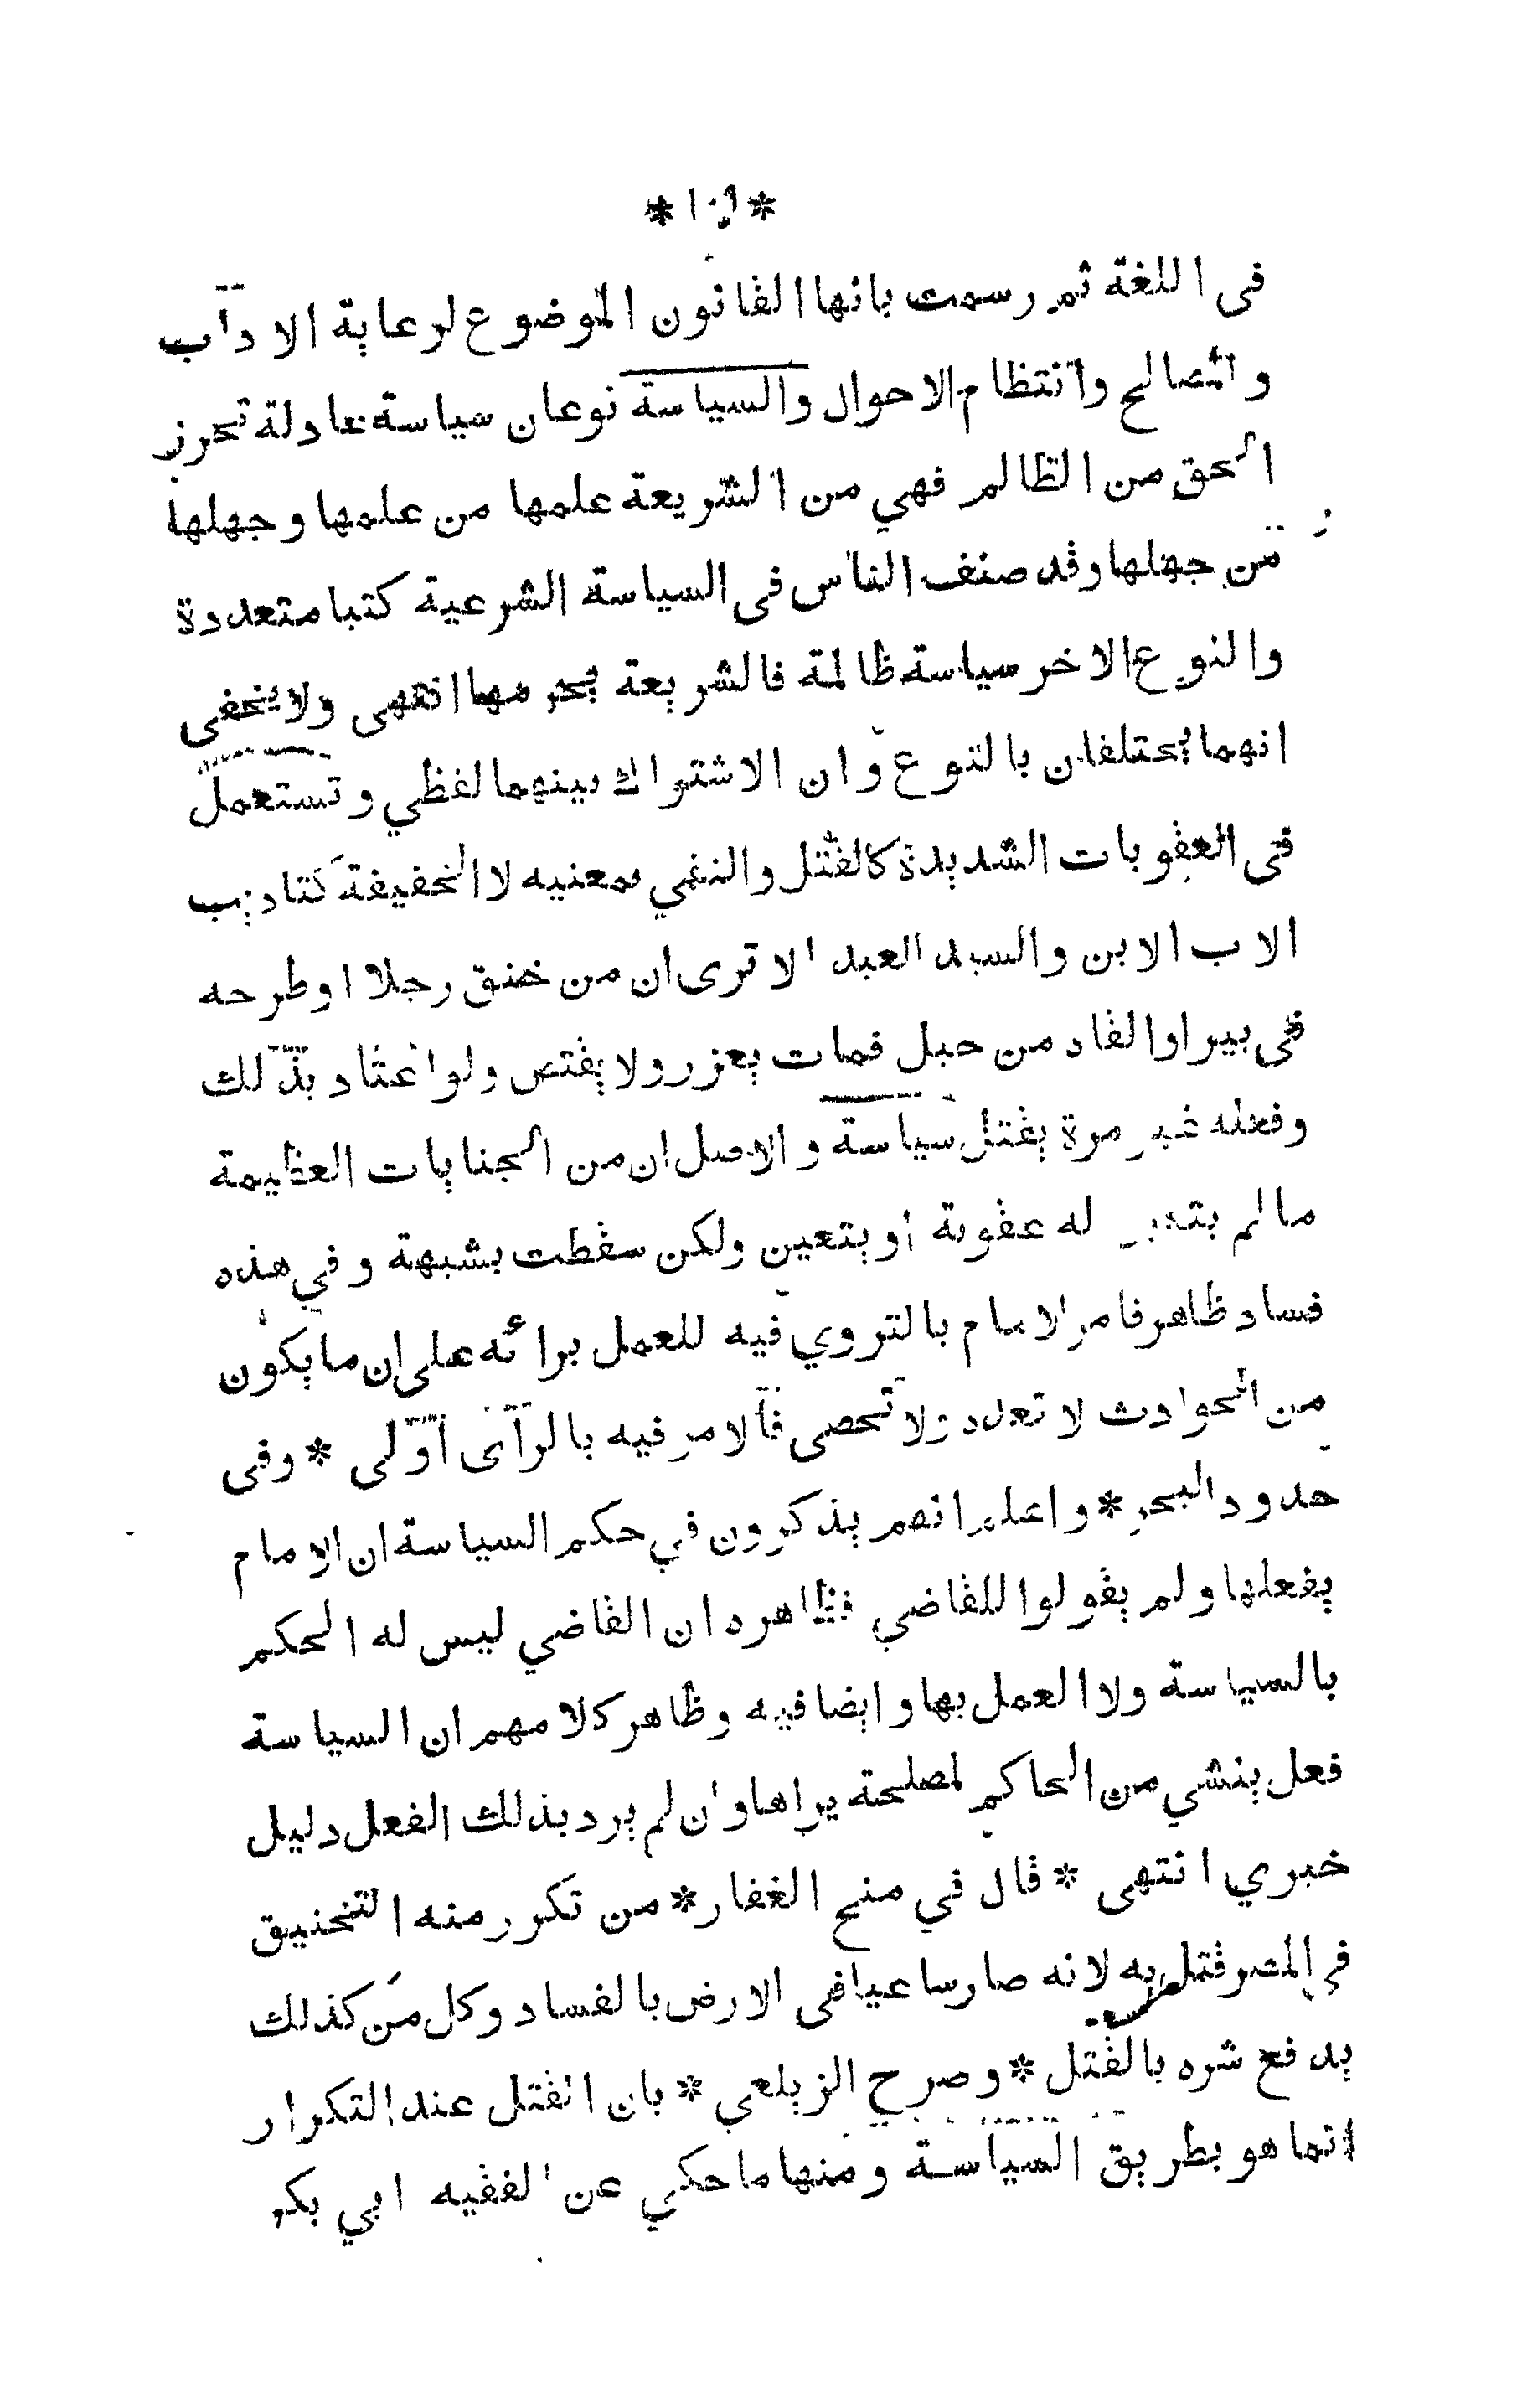 فى اللغة ثم رسمت بانها القانون الموضوع لرعاية الاداب
والمصالح وانتظام الاحوال والسياسة نوعان سياسة عادلة تحرز
الحق من الظالم فهي من الشريعة علمها من علمها وجهلها
من جهلها وقد صنف الناس فى السياسة الشرعية كتبا متعددة
والنوع الاخر سياسة ظالمة فالشريعة يحرمها انتهى ولا يخفى
انهما يختلفان بالنوع وان الاشتراك بينهما لفظي وتستعمل
فى العقوبات الشديدة كالقتل والنفي بمعنيه لا الخفيفة كتاديب
الاب الابن والسيد العبد الا ترى ان من خنق رجلا او طرحه
فى بير او القاه من جبل فمات يعزر ولا يقتص ولو اعتاد بذلك
وفعله غير مرة يقتل سياسة والاصل ان من الجنايات العظيمة
ما لم يتعين له عقوبة او يتعين ولكن سقطت بشبهة وفي هذه
فساد ظاهر فامر الامام بالتروي فيه للعمل برائه على ان ما يكون
من الحوادث لا تعدد ولا تحصى فالامر فيه بالرآى اولى * وفى
حدود البحر * واعلم انهم يذكرون في حكم السياسة ان الامام
يفعلها ولم يقولوا للقاضي فظاهره ان القاضي ليس له الحكم
بالسياسة ولا العمل بها وايضا فيه وظاهر كلامهم ان السياسة
فعل ينشي من الحاكم لمصلحة يراها وان لم يرد بذلك الفعل دليل
خبري انتهى * قال في منح الغفار * من تكرر منه التخنيق
في المصر قتل به لانه صار ساعيا فى الارض بالفساد وكل من كذلك
يدفع شره بالقتل * وصرح الزيلعي * بان القتل عند التكرار
انما هو بطريق السياسة ومنها ما حكي عن الفقيه ابي بكر